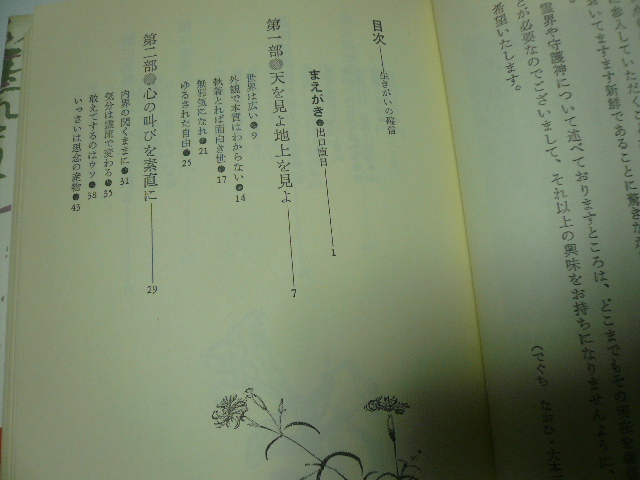 に参えしていただい
おいてますます新鮮であることに驚きがた
霊界や守護神について述べておりますところは、どこまでもその実在を
とが必要なのでございまして、それ以上の興味をお持ちになりませんように、
希望いたします。
（でぐち なおひ・大本
目次――生きがいの確信
まえがき●出口直日――1
第一部●天を見よ地上を見よ――7
世界は広い●9
外観で本質はわからない●14
執着とれば面白き世●17
無邪気になれ●21
ゆるされた自由●25
第二部●心の叫びを素直に――29
内界の閃くままに●31
気分は霊流で変わる●35
敢えてするのはウソ●38
いっさいは思念の産物●43